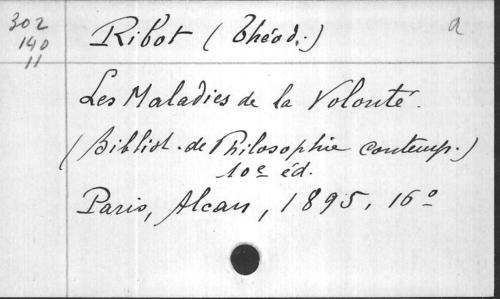 302
140
11
Ribot (Théod.)
a
Les Maladies de la Volonté.
(Bibliot. de Philosophie contemp.)
10e éd.
Paris, Alcan, 1895, 16o